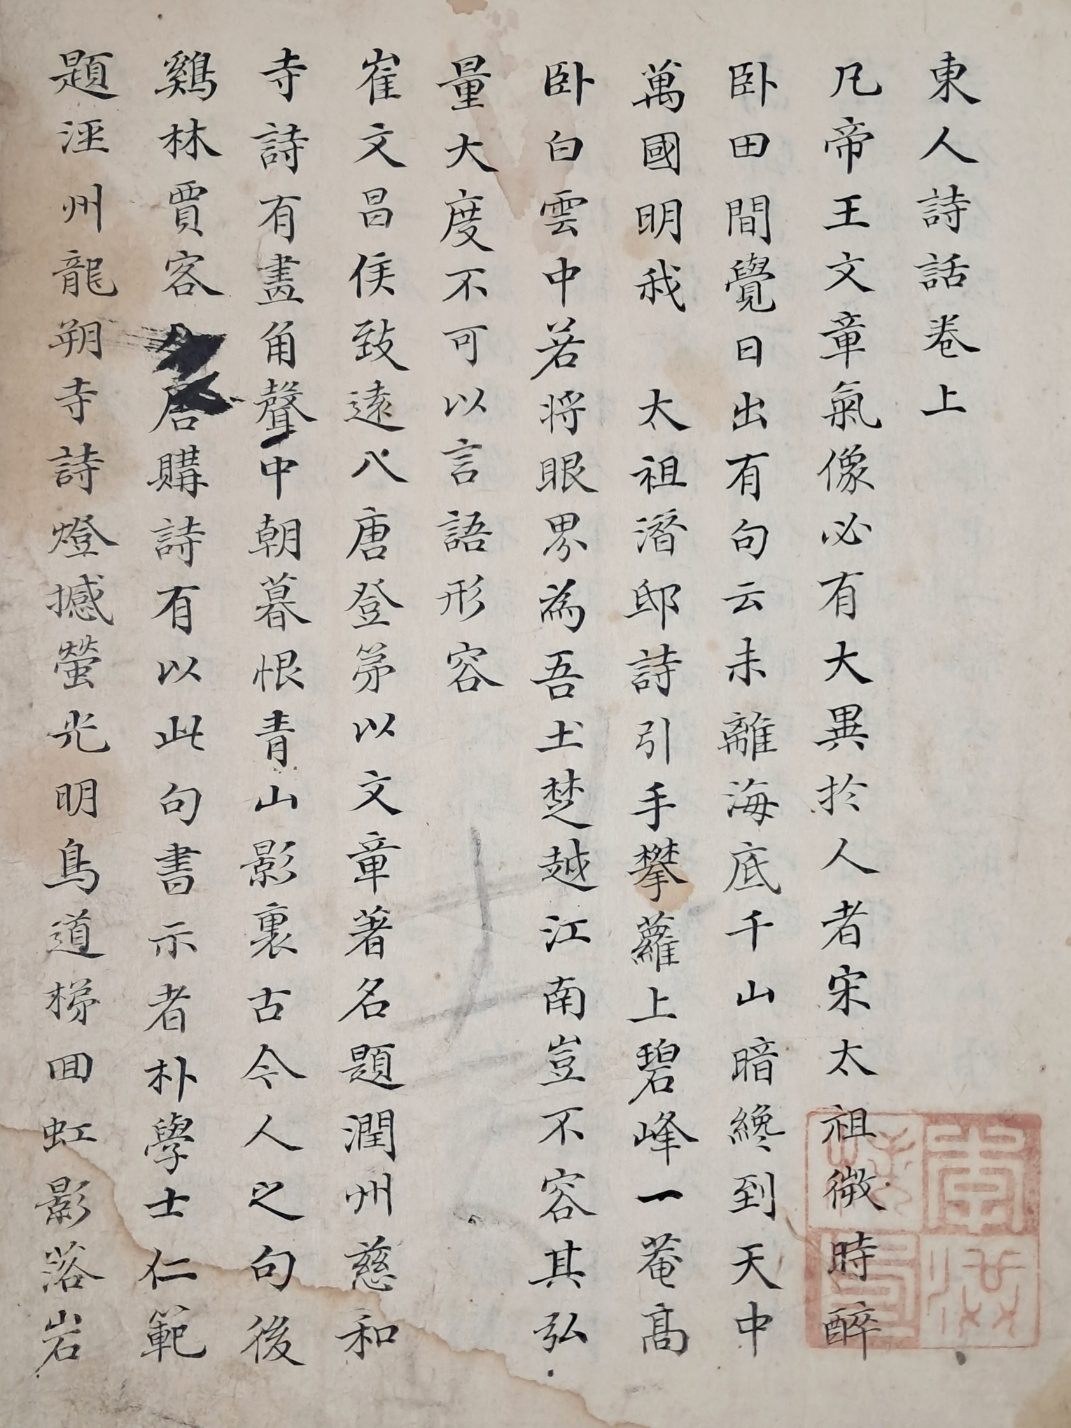 東人詩話卷上
凡帝王文章氣像必有大異於人者宋太祖微時醉
臥田間覺日出有句云未離海底千山暗纔到天中
萬國明我 太祖潛邸詩引手攀蘿上碧峰一菴高
臥白雲中若將眼界為吾土楚越江南豈不容其弘
量大度不可以言語形容
崔文昌侯致遠入唐登第以文章著名題潤州慈和
寺詩有畵角聲中朝暮恨青山影裏古今人之句後
鷄林賈客 唐購詩有以此句書示者朴學士仁範
題涇州龍朔寺詩燈撼螢光明鳥道梯回虹影落岩